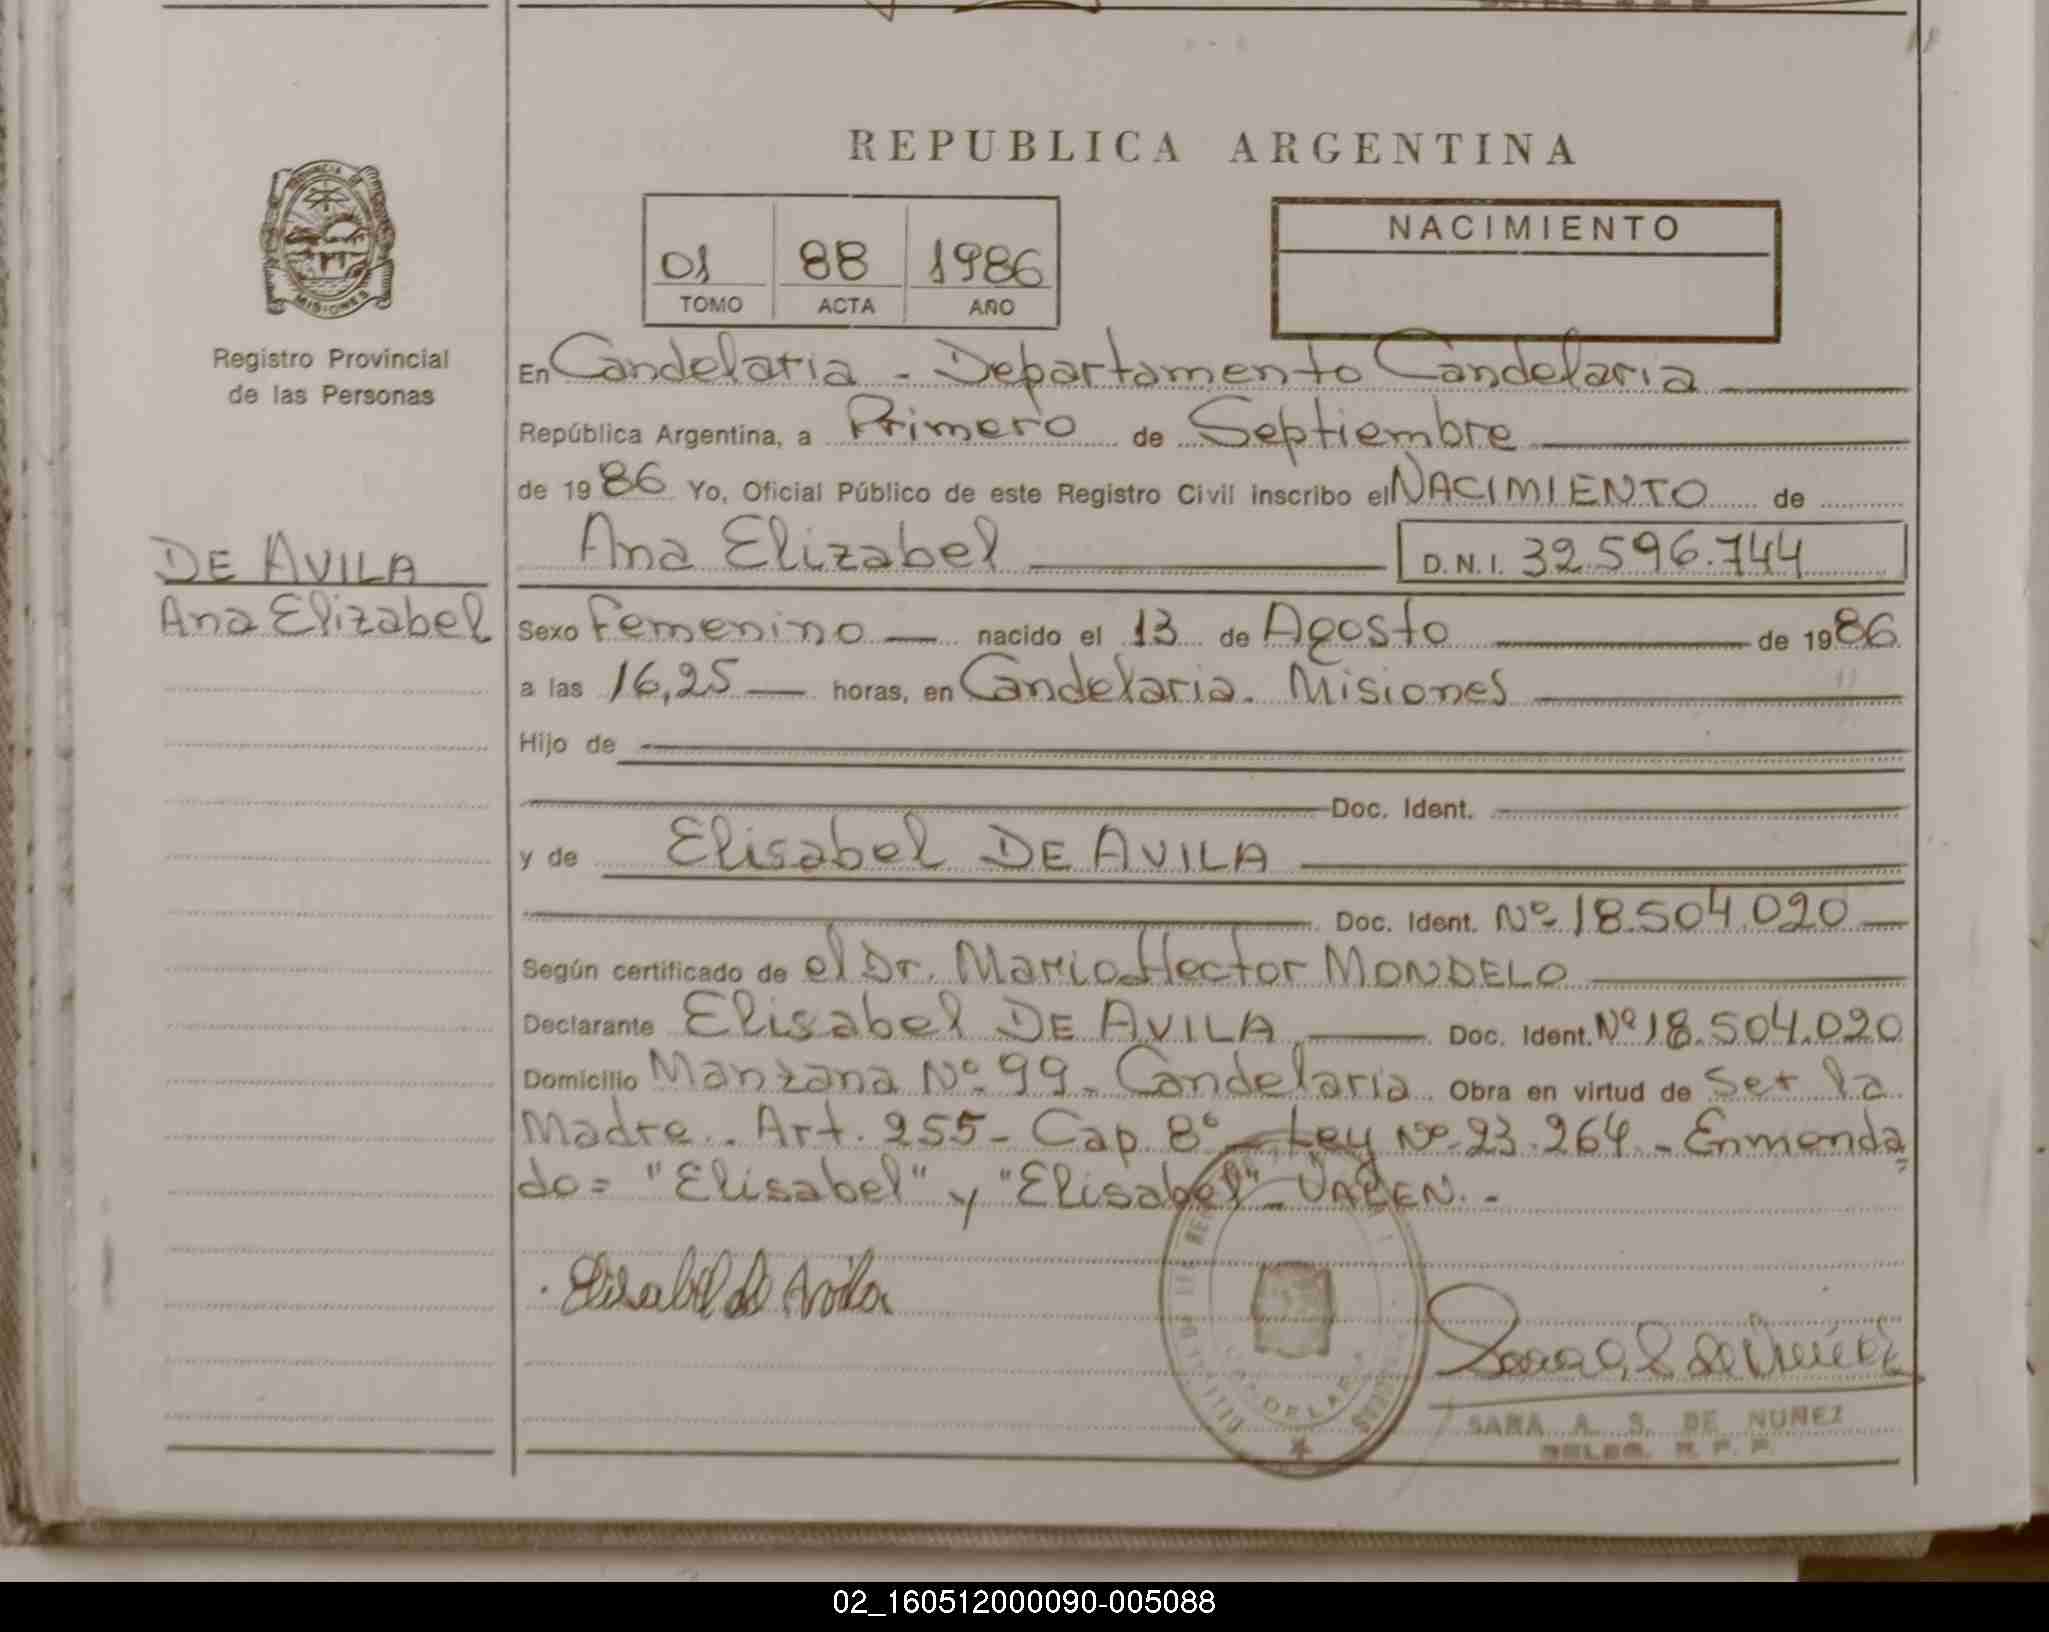 REPUBLICA ARGENTINA
PROVINCIA DE
MISIONES
Registro Provincial
de las Personas
01 88 1986
TOMO ACTA AÑO
NACIMIENTO
En Candelaria - Departamento Candelaria
República Argentina, a Primero de Septiembre
de 1986 Yo, Oficial Público de este Registro Civil inscribo el NACIMIENTO de
Ana Elizabel D.N.I. 32.596.744
DE AVILA
Ana Elizabel
Sexo Femenino nacido el 13 de Agosto de 1986
a las 16,25 horas, en Candelaria. Misiones
Hijo de
Doc. Ident.
y de Elisabel DE AVILA
Doc. Ident. Nº 18.504.020
Según certificado de el Dr. Mario Hector MONDELO
Declarante Elisabel DE AVILA Doc. Ident. Nº 18.504.020
Domicilio Manzana Nº 99 - Candelaria Obra en virtud de Ser la
Madre. Art. 255 - Cap. 8º - Ley Nº 23.264 - Enmenda
do = "Elisabel" y "Elisabel" - VALEN. -
Elisabel de Avila
SARA A. S. DE NUÑEZ
DELEG. R. P. P.
02_160512000090-005088